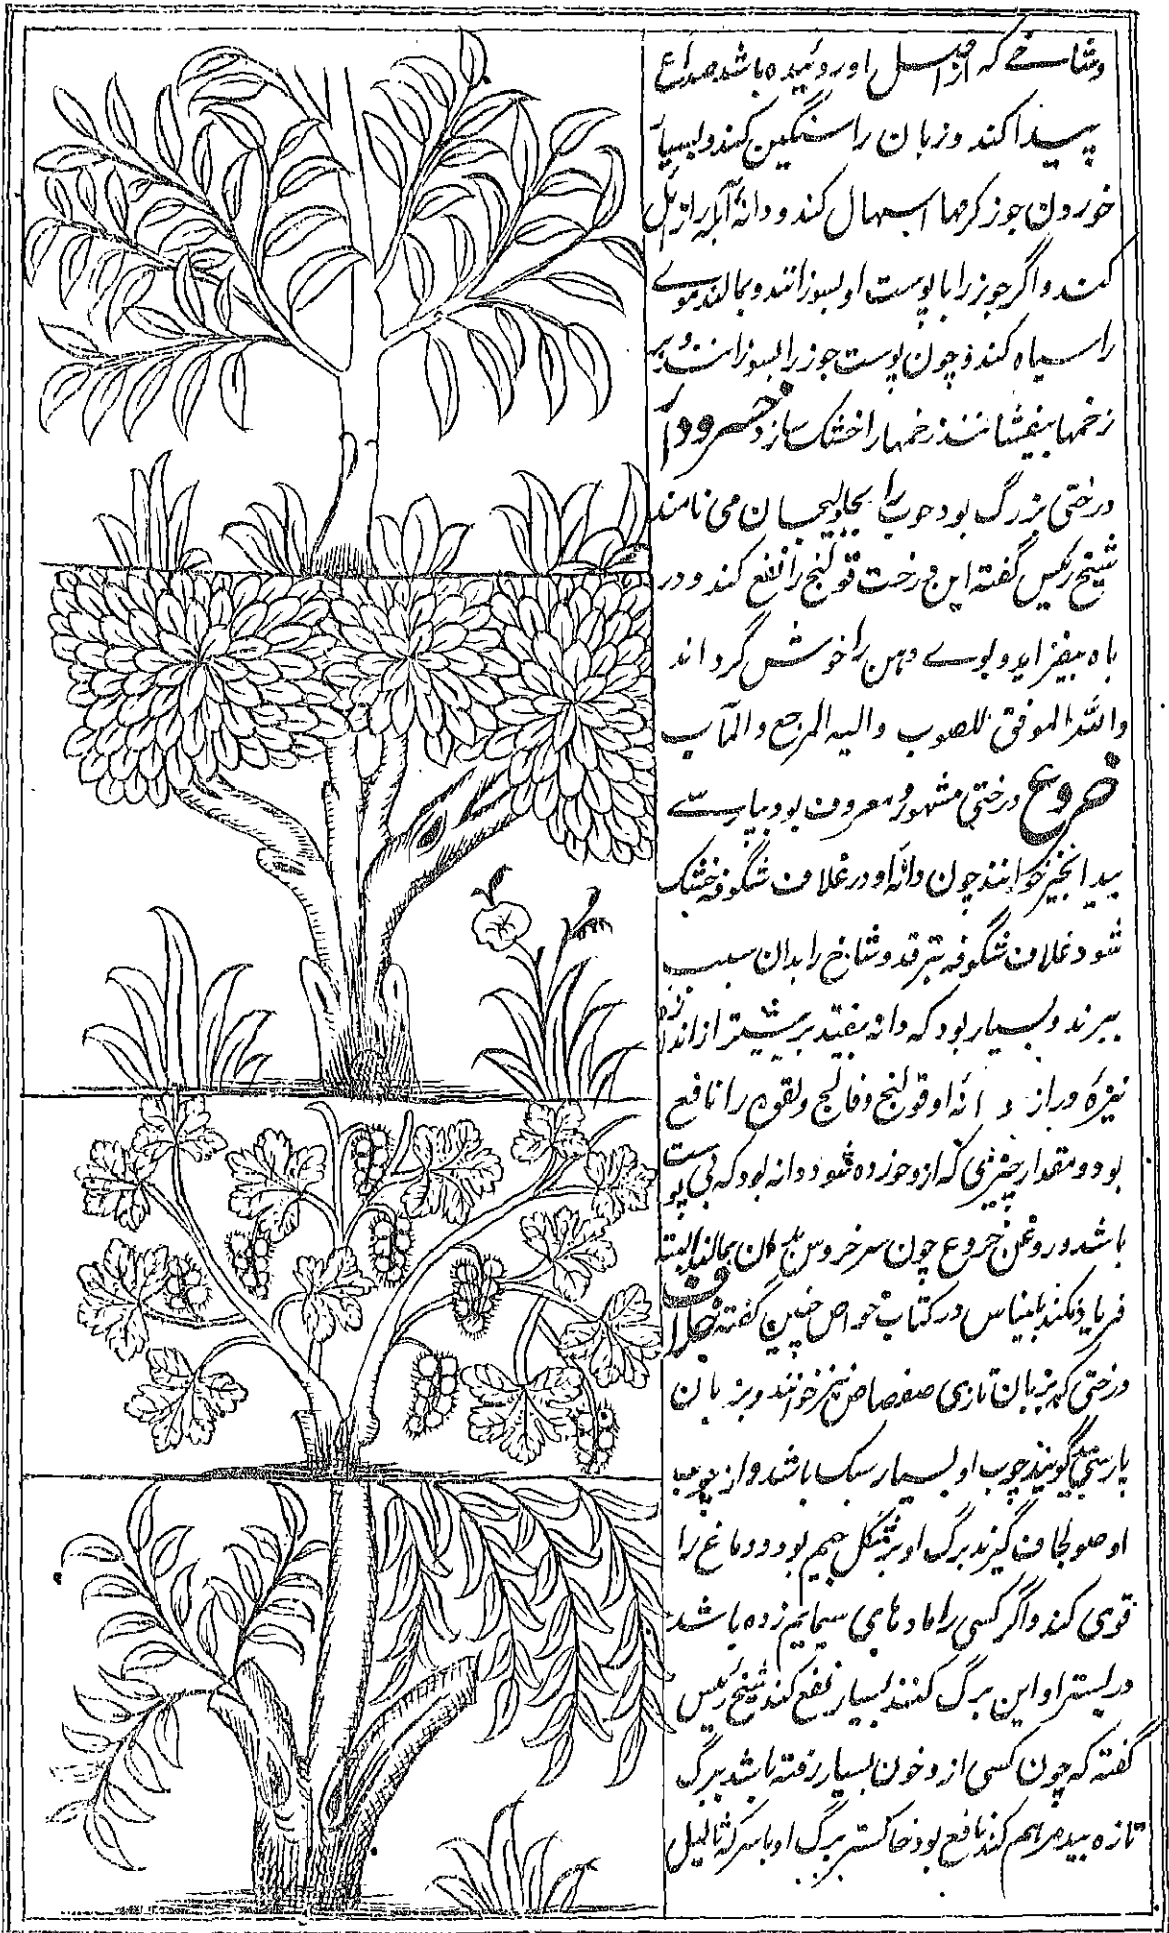 و شاخے که از اصل او روئیده باشد صداع
پیدا کند و زبان را سنگین کند و بسیار
خوردن جوز کرمها اسهال کند و دانۀ آبله را زائل
کند و اگر جوز را با پوست او بسوزانند و بمالند موے
را سیاه کند و چون پوست جوز را بسوزانند و بر
زخمها بیفشانند زخمها را خشک سازد خسرودار
درختی بزرگ بود چوب را خاولنجان می نامند
شیخ رئیس گفته این درخت قولنج را نفع کند و در
باه بیفزاید و بوے دهن را خوش گرداند
والله الموفق للصوب والیه المرجع والمآب
خروع درختی مشهور و معروف بود بپارسے
بیدانجیر خوانند چون دانۀ او در غلاف شگوفه خشک
شود غلاف شگوفه بترقد و شاخ را بدان سبب
ببرند و بسیار بود که دانه بیفتد بر بیشتر از اندازه
نیزۀ دراز دانۀ او قولنج و فالج و لقوه را نافع
بود و مقدار چیزی که ازو خورده شود دانه بود که بی پوست
باشد و روغن خروع چون سر خروس بدان بمالند البته
فریاد نکند بلیناس در کتاب خواص چنین گفته خلاف
درختی که بزبان تازی صفصاف نیز خوانند و بزبان
پارسی گویند چوب او بسیار سبک باشد و از چوب
او صولجان گیرند برگ او بر شکل جیم بود و دماغ را
قوی کند و اگر کسی را بادهای سمایم زده باشد
در بستر او این برگ کنند بسیار نفع کند شیخ رئیس
گفته که چون کسی از و خون بسیار رفته باشد ببرگ
تازه بید مرهم کند نافع بود خاکستر برگ او با سرکه ثالیل